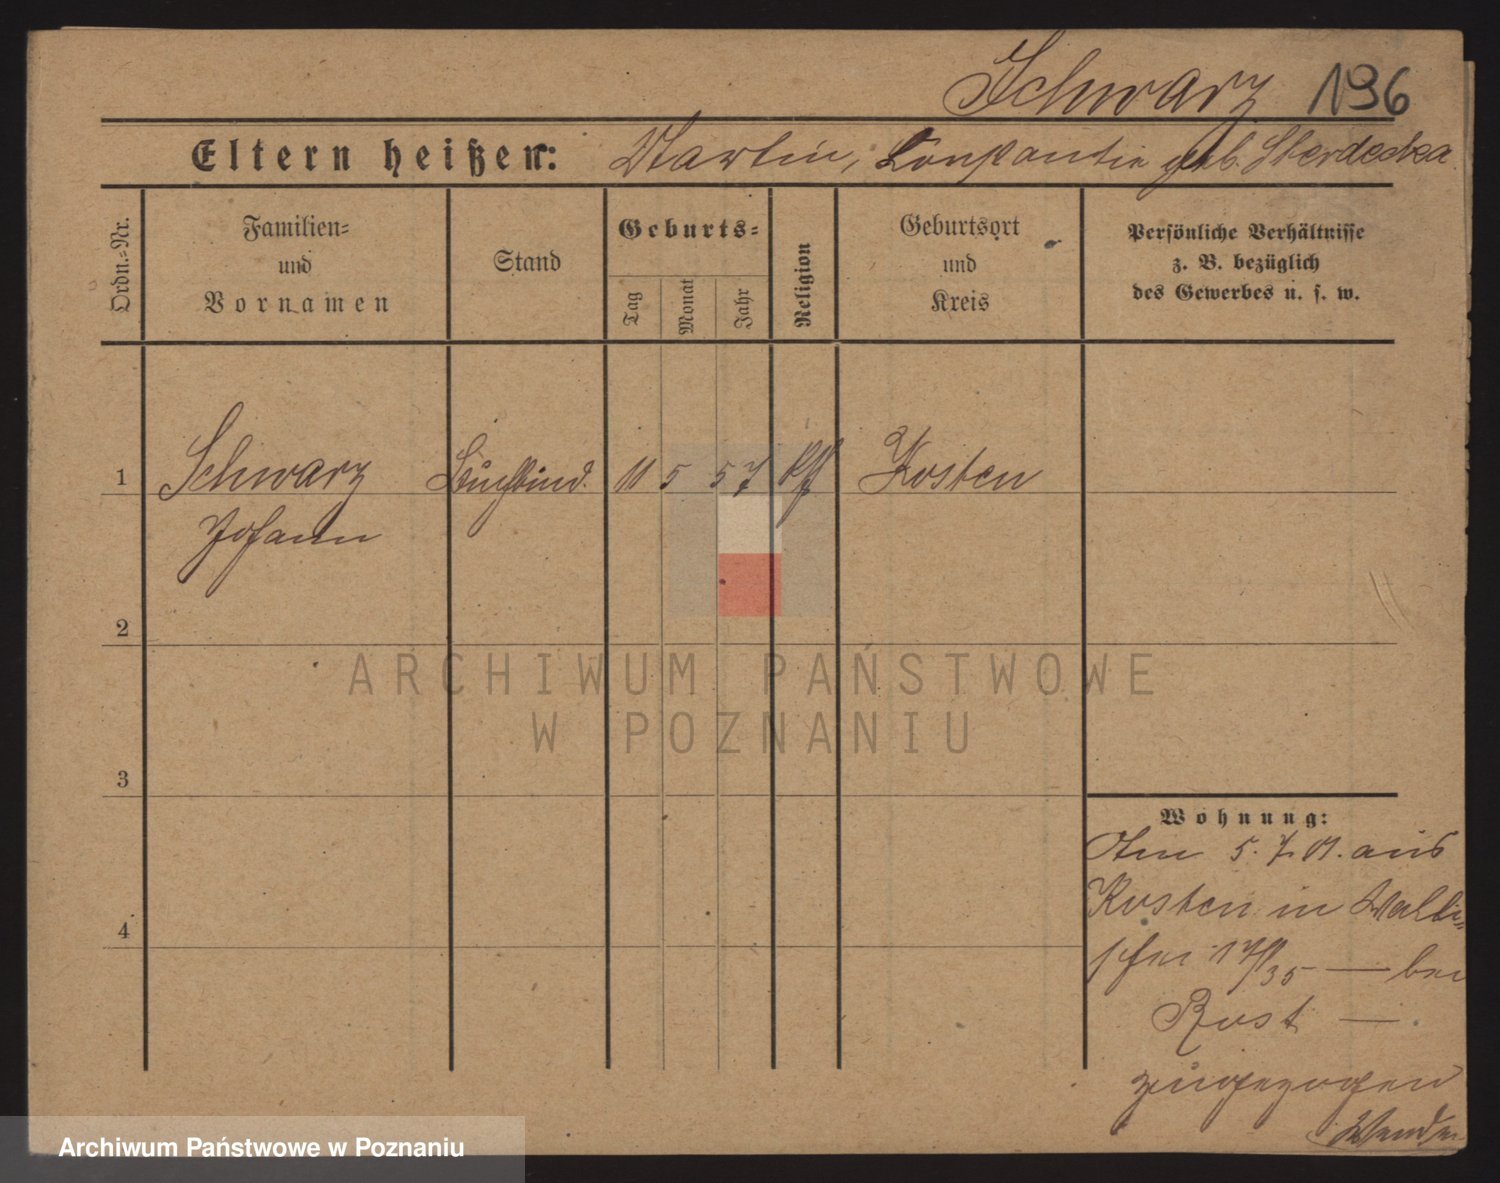 Schwarz 196
Eltern heißen: Martin, Konstantie geb.
Ordn.-Nr.
Familien=
und
Vornamen
Stand
Geburts=
Tag
Monat
Jahr
Religion
Geburtsort
und
Kreis
Persönliche Verhältnisse
z. B. bezüglich
des Gewerbes u. s. w.
1 Schwarz Buchbind. 11 5 57 Kosten
Johann
2
3
4
Wohnung:
Am 5. 7. 01. aus
Kosten in Walli=
schei 17/35 — bei
Rost —
zugezogen
Wenden
ARCHIWUM PAŃSTWOWE
W POZNANIU
Archiwum Państwowe w Poznaniu